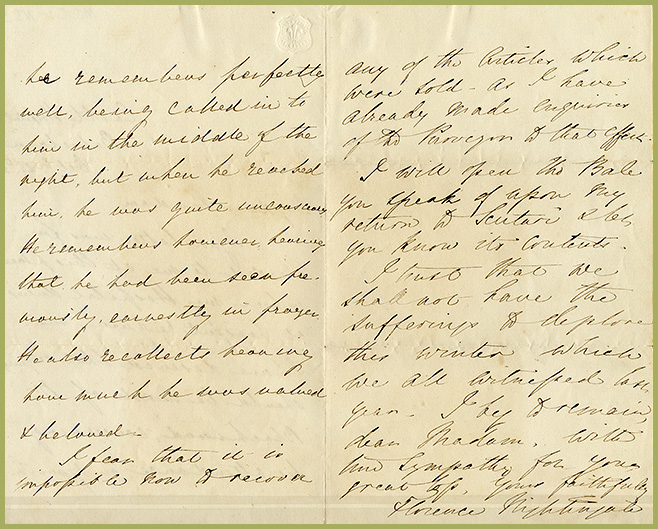 he remembers perfectly
well, being called in to
him in the middle of the
night, but when he reached
him, he was quite unconscious
He remembers however, hearing
that he had been seen pre-
viously, earnestly in prayer
He also recollects hearing
how much he was valued
& beloved -
I fear that it is
impossible now to recover
any of the Articles which
were sold - as I have
already made enquiries
of the to that effect.
I will open the Bale
you speak of upon my
return to Scutari & let
you know its contents.
I trust that we
shall not have the
sufferings to deplore
this winter which
we all witnessed last
year - I beg to remain,
dear Madam, with
true sympathy for your
great loss, Yours faithfully
Florence Nightingale